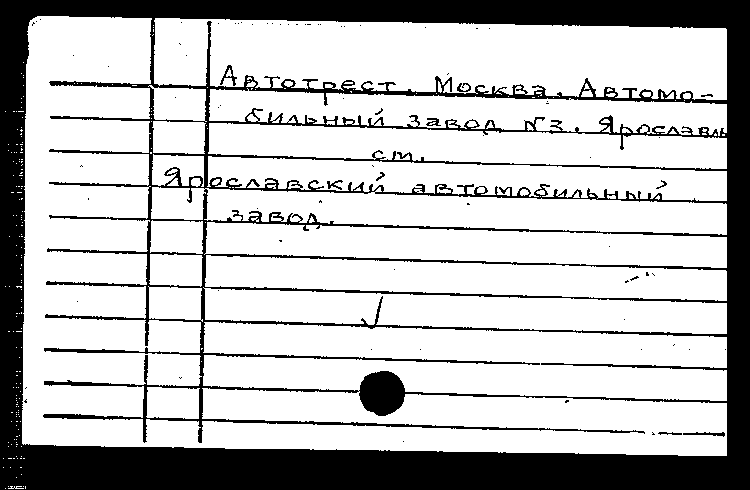 Автотрест. Москва. Автомо-
бильный завод №3. Ярославль
см.
Ярославский автомобильный
завод.